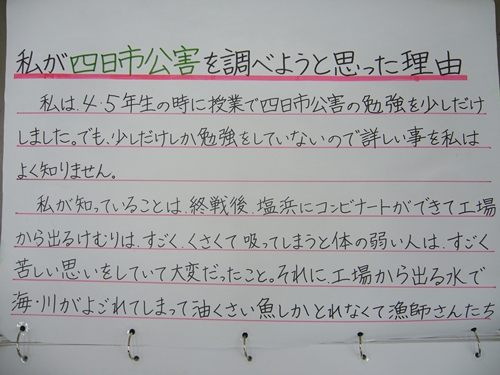 私が四日市公害を調べようと思った理由
私は、4・5年生の時に授業で四日市公害の勉強を少しだけ
しました。でも、少しだけしか勉強をしていないので詳しい事を私は
よく知りません。
私が知っていることは、終戦後、塩浜にコンビナートができて工場
から出るけむりは、すごく、くさくて吸ってしまうと体の弱い人は、すごく
苦しい思いをしていて大変だったこと。それに、工場から出る水で
海・川がよごれてしまって油くさい魚しかとれなくて漁師さんたち